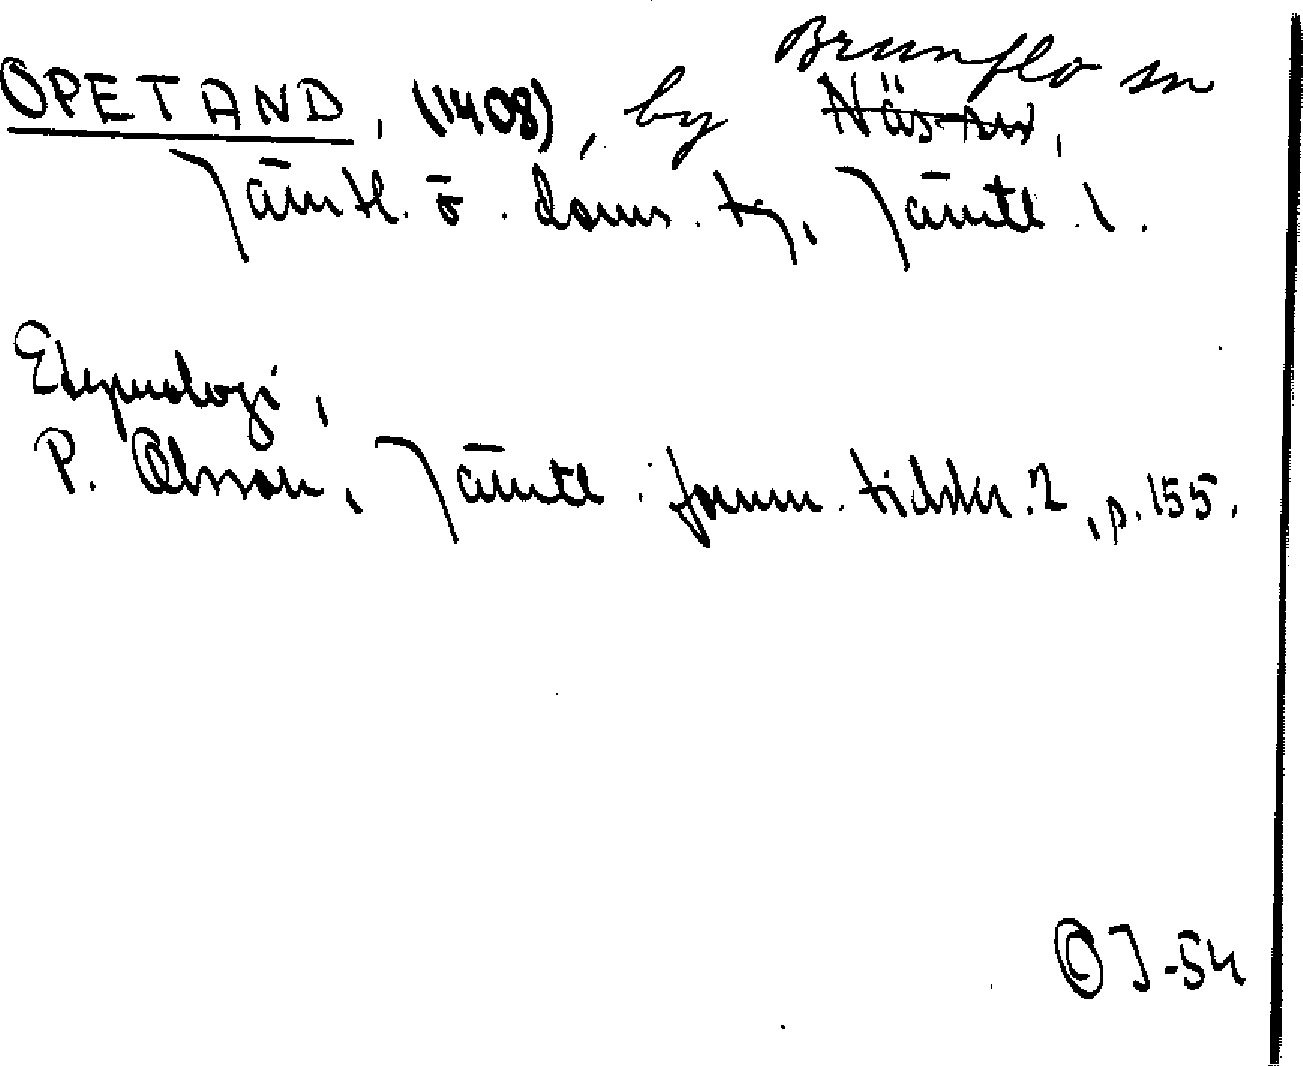 Brunflo sn
OPETAND, (1408), by Näs sn,
Jämtl. ö. doms. tg, Jämtl. l.
Etymologi,
P. Olsson, Jämtl. fornm. tidskr. 2, p. 155.
ÖJ-54